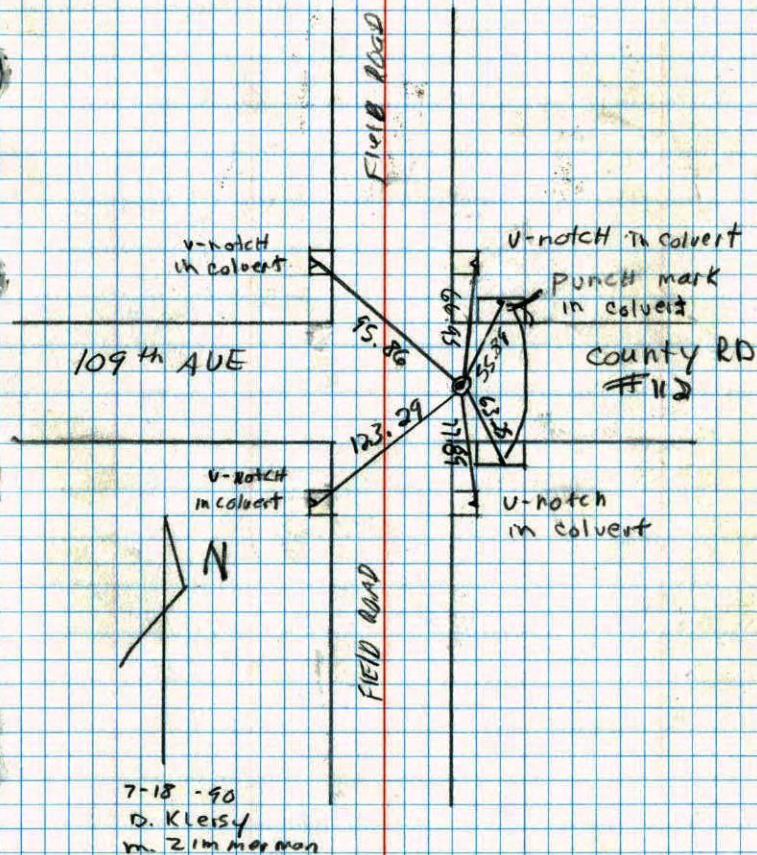 FIELD ROAD
V-notcH
in colvert
V-notcH in colvert
Punch mark
in colvert
95.86
55.36
109th AVE
County RD
123.29
77.85
V-notcH
in colvert
V-notch
in colvert
N
FIELD ROAD
7-18-90
D. Klersy
m. Zimmerman